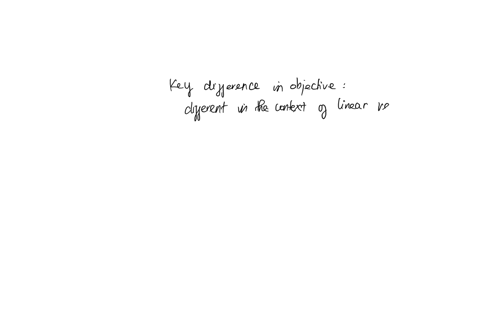 Key difference in objective :
different in the context of linear re